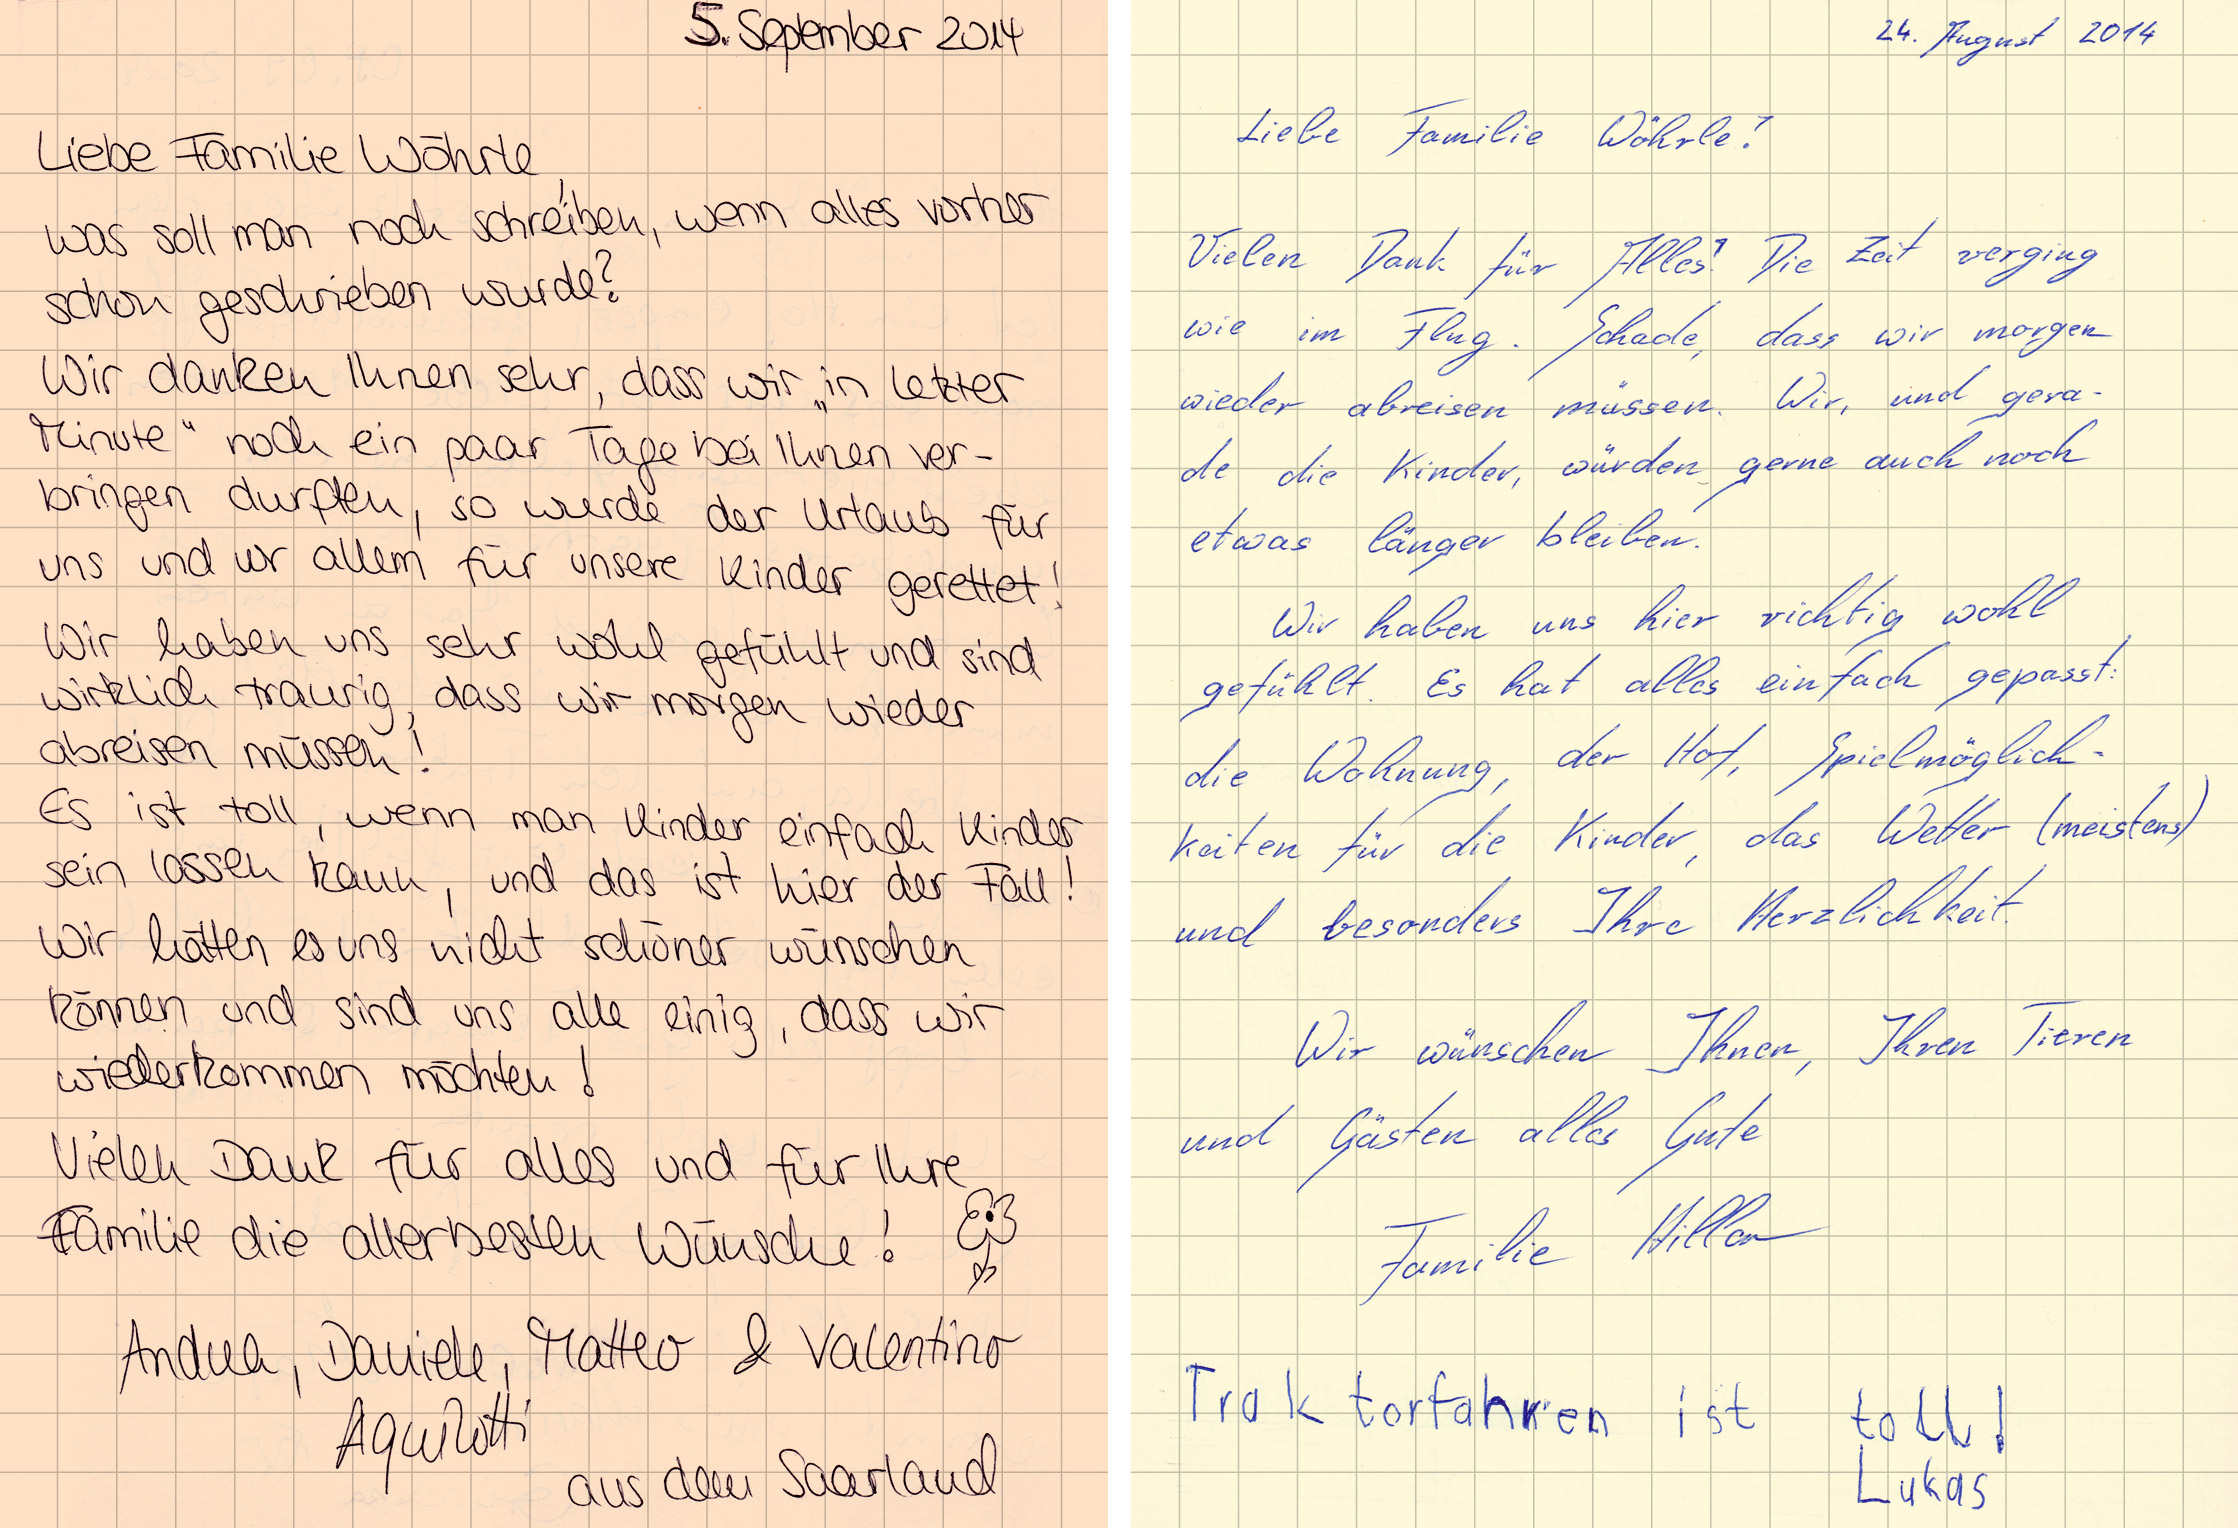 5. September 2014
Liebe Familie Wöhrle,
was soll man noch schreiben, wenn alles vorher
schon geschrieben wurde?
Wir danken Ihnen sehr, dass wir „in letzter
Minute“ noch ein paar Tage bei Ihnen ver-
bringen durften, so wurde der Urlaub für
uns und vor allem für unsere Kinder gerettet!
Wir haben uns sehr wohl gefühlt und sind
wirklich traurig, dass wir morgen wieder
abreisen müssen!
Es ist toll, wenn man Kinder einfach Kinder
sein lassen kann, und das ist hier der Fall!
Wir hätten es uns nicht schöner wünschen
können und sind uns alle einig, dass wir
wiederkommen möchten!
Vielen Dank für alles und für Ihre
Familie die allerbesten Wünsche!
Andrea, Daniele, Matteo & Valentino
aus dem Saarland
24. August 2014
Liebe Familie Wöhrle!
Vielen Dank für Alles! Die Zeit verging
wie im Flug. Schade, dass wir morgen
wieder abreisen müssen. Wir, und gera-
de die Kinder, würden gerne auch noch
etwas länger bleiben.
Wir haben uns hier richtig wohl
gefühlt. Es hat alles einfach gepasst:
die Wohnung, der Hof, Spielmöglich-
keiten für die Kinder, das Wetter (meistens)
und besonders Ihre Herzlichkeit.
Wir wünschen Ihnen, Ihren Tieren
und Gästen alles Gute
Familie
Traktorfahren ist toll!
Lukas